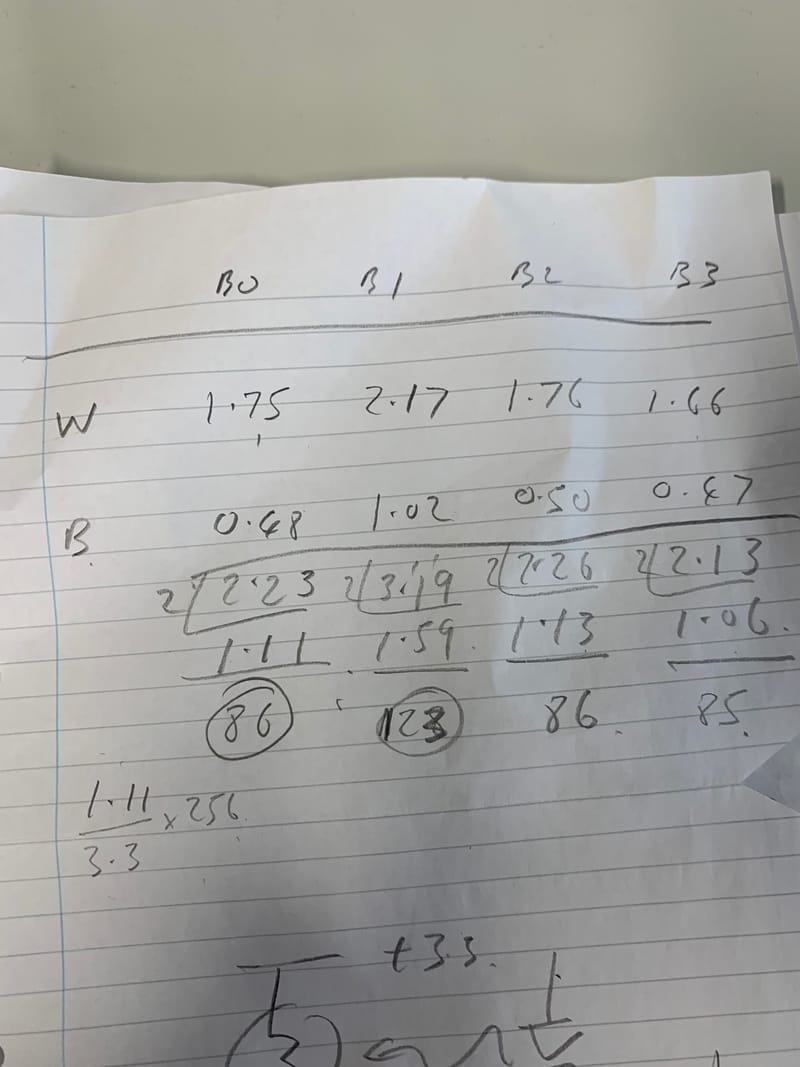 B0 B1 B2 B3
W 1.75 2.17 1.76 1.66
B 0.48 1.02 0.50 0.47
2 2.23 2 3.19 2 2.26 2 2.13
1.11 1.59 1.13 1.06
86 123 86 85
1.11
3.3 x 256
+3.3